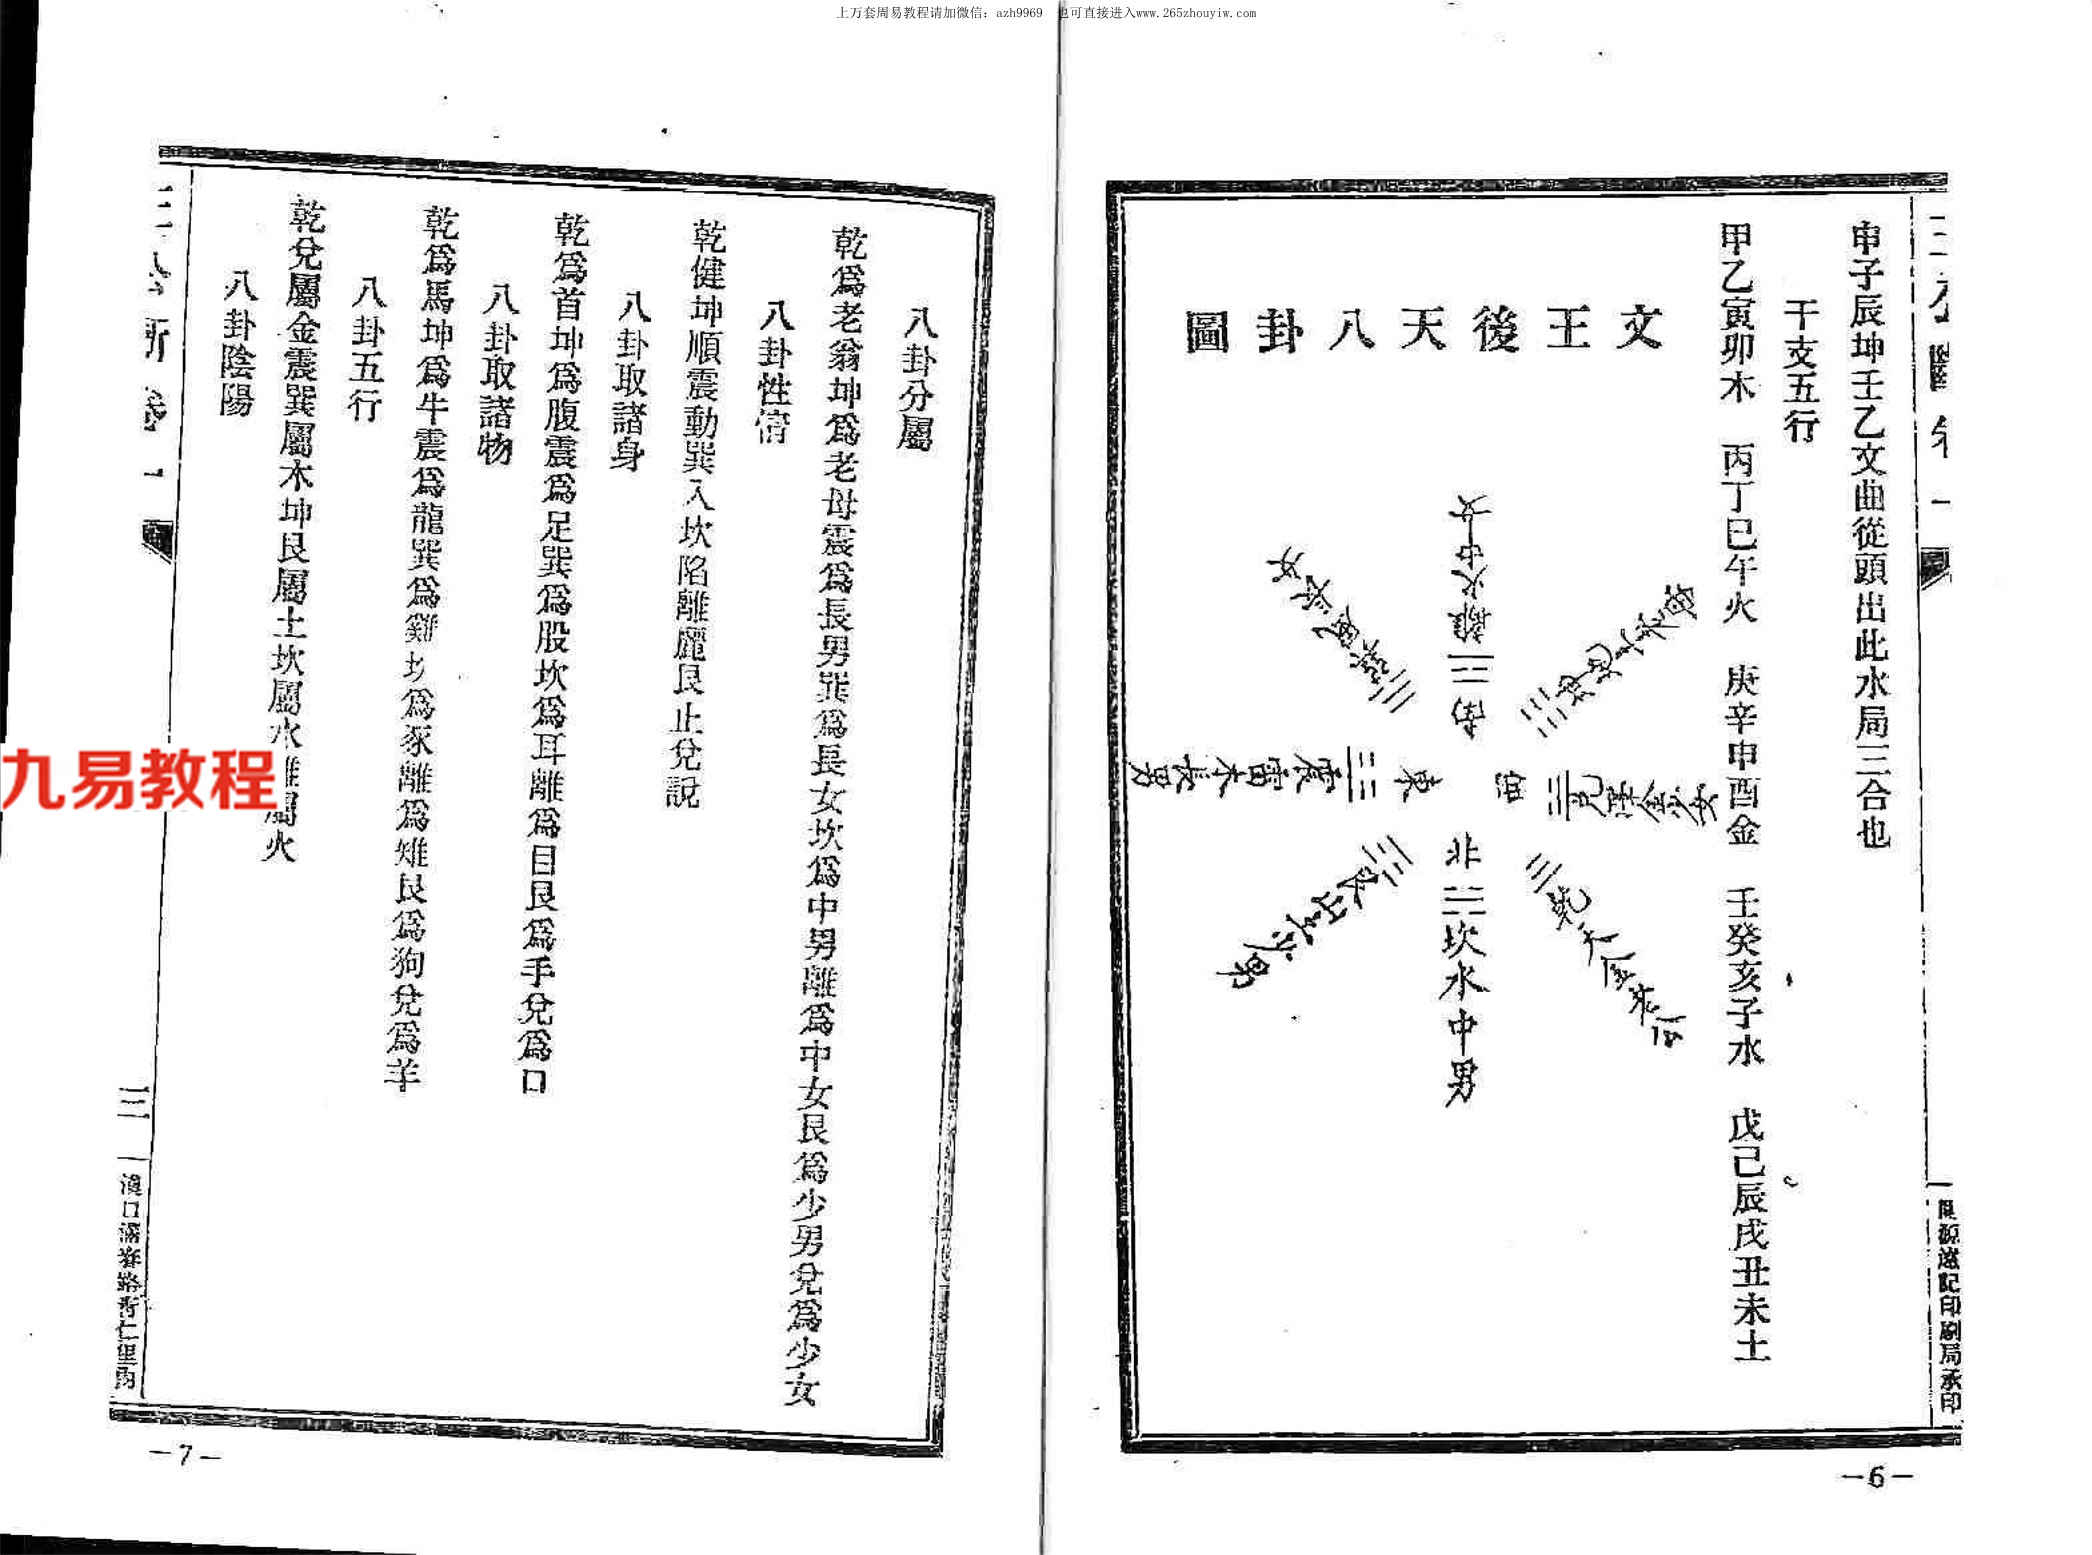 上万套周易教程请加微信：azh9969　也可直接进入www.265zhouyiw.com
申子辰坤壬乙文曲從頭出此水局三合也
干支五行
甲乙寅卯木　丙丁巳午火　庚辛申酉金　壬癸亥子水　戊己辰戌丑未土
文王後天八卦圖
南☲離火中女
☷坤地土老母
西☱兌澤金少女
☰乾天金老公
北☵坎水中男
☶艮山土少男
東☳震雷木長男
☴巽風木長女
開源遠記印刷局承印
—6—
八卦分屬
乾爲老翁坤爲老母震爲長男巽爲長女坎爲中男離爲中女艮爲少男兌爲少女
八卦性情
乾健坤順震動巽入坎陷離麗艮止兌說
八卦取諸身
乾爲首坤爲腹震爲足巽爲股坎爲耳離爲目艮爲手兌爲口
八卦取諸物
乾爲馬坤爲牛震爲龍巽爲雞坎爲豕離爲雉艮爲狗兌爲羊
八卦五行
乾兌屬金震巽屬木坤艮屬土坎屬水離屬火
八卦陰陽
三
漢口滿春路
—7—
九易教程